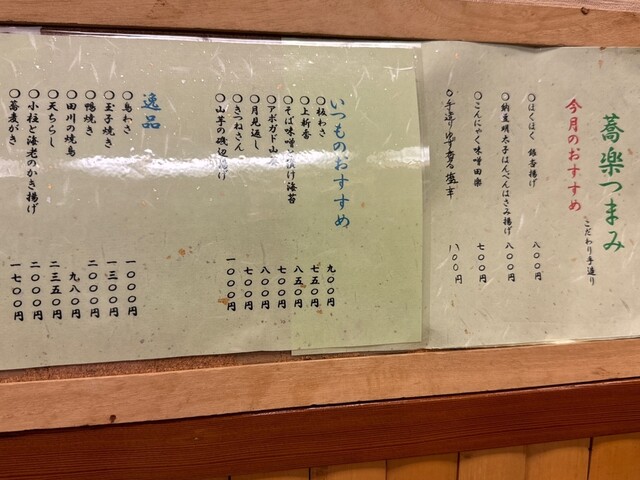 蕎楽つまみ
こだわり手造り
今月のおすすめ
○ほくほく 銀杏揚げ 八〇〇円
○納豆明太子はんぺんはさみ揚げ 八〇〇円
○こんにゃく味噌田楽 七〇〇円
○手造り 八〇〇円
いつものおすすめ
○板わさ 九〇〇円
○上新香 七五〇円
○そば味噌と 海苔 八五〇円
○アボガド山 七〇〇円
○月見返し 八〇〇円
○きつねさん 七〇〇円
○山芋の磯辺揚げ 一〇〇〇円
逸品
○鳥わさ 一〇〇〇円
○玉子焼き 一三〇〇円
○鴨焼き 二〇〇〇円
○田川の焼鳥 九八〇円
○天ちらし 二三五〇円
○小柱と海老のかき揚げ 二〇〇〇円
○蕎麦がき 一七〇〇円